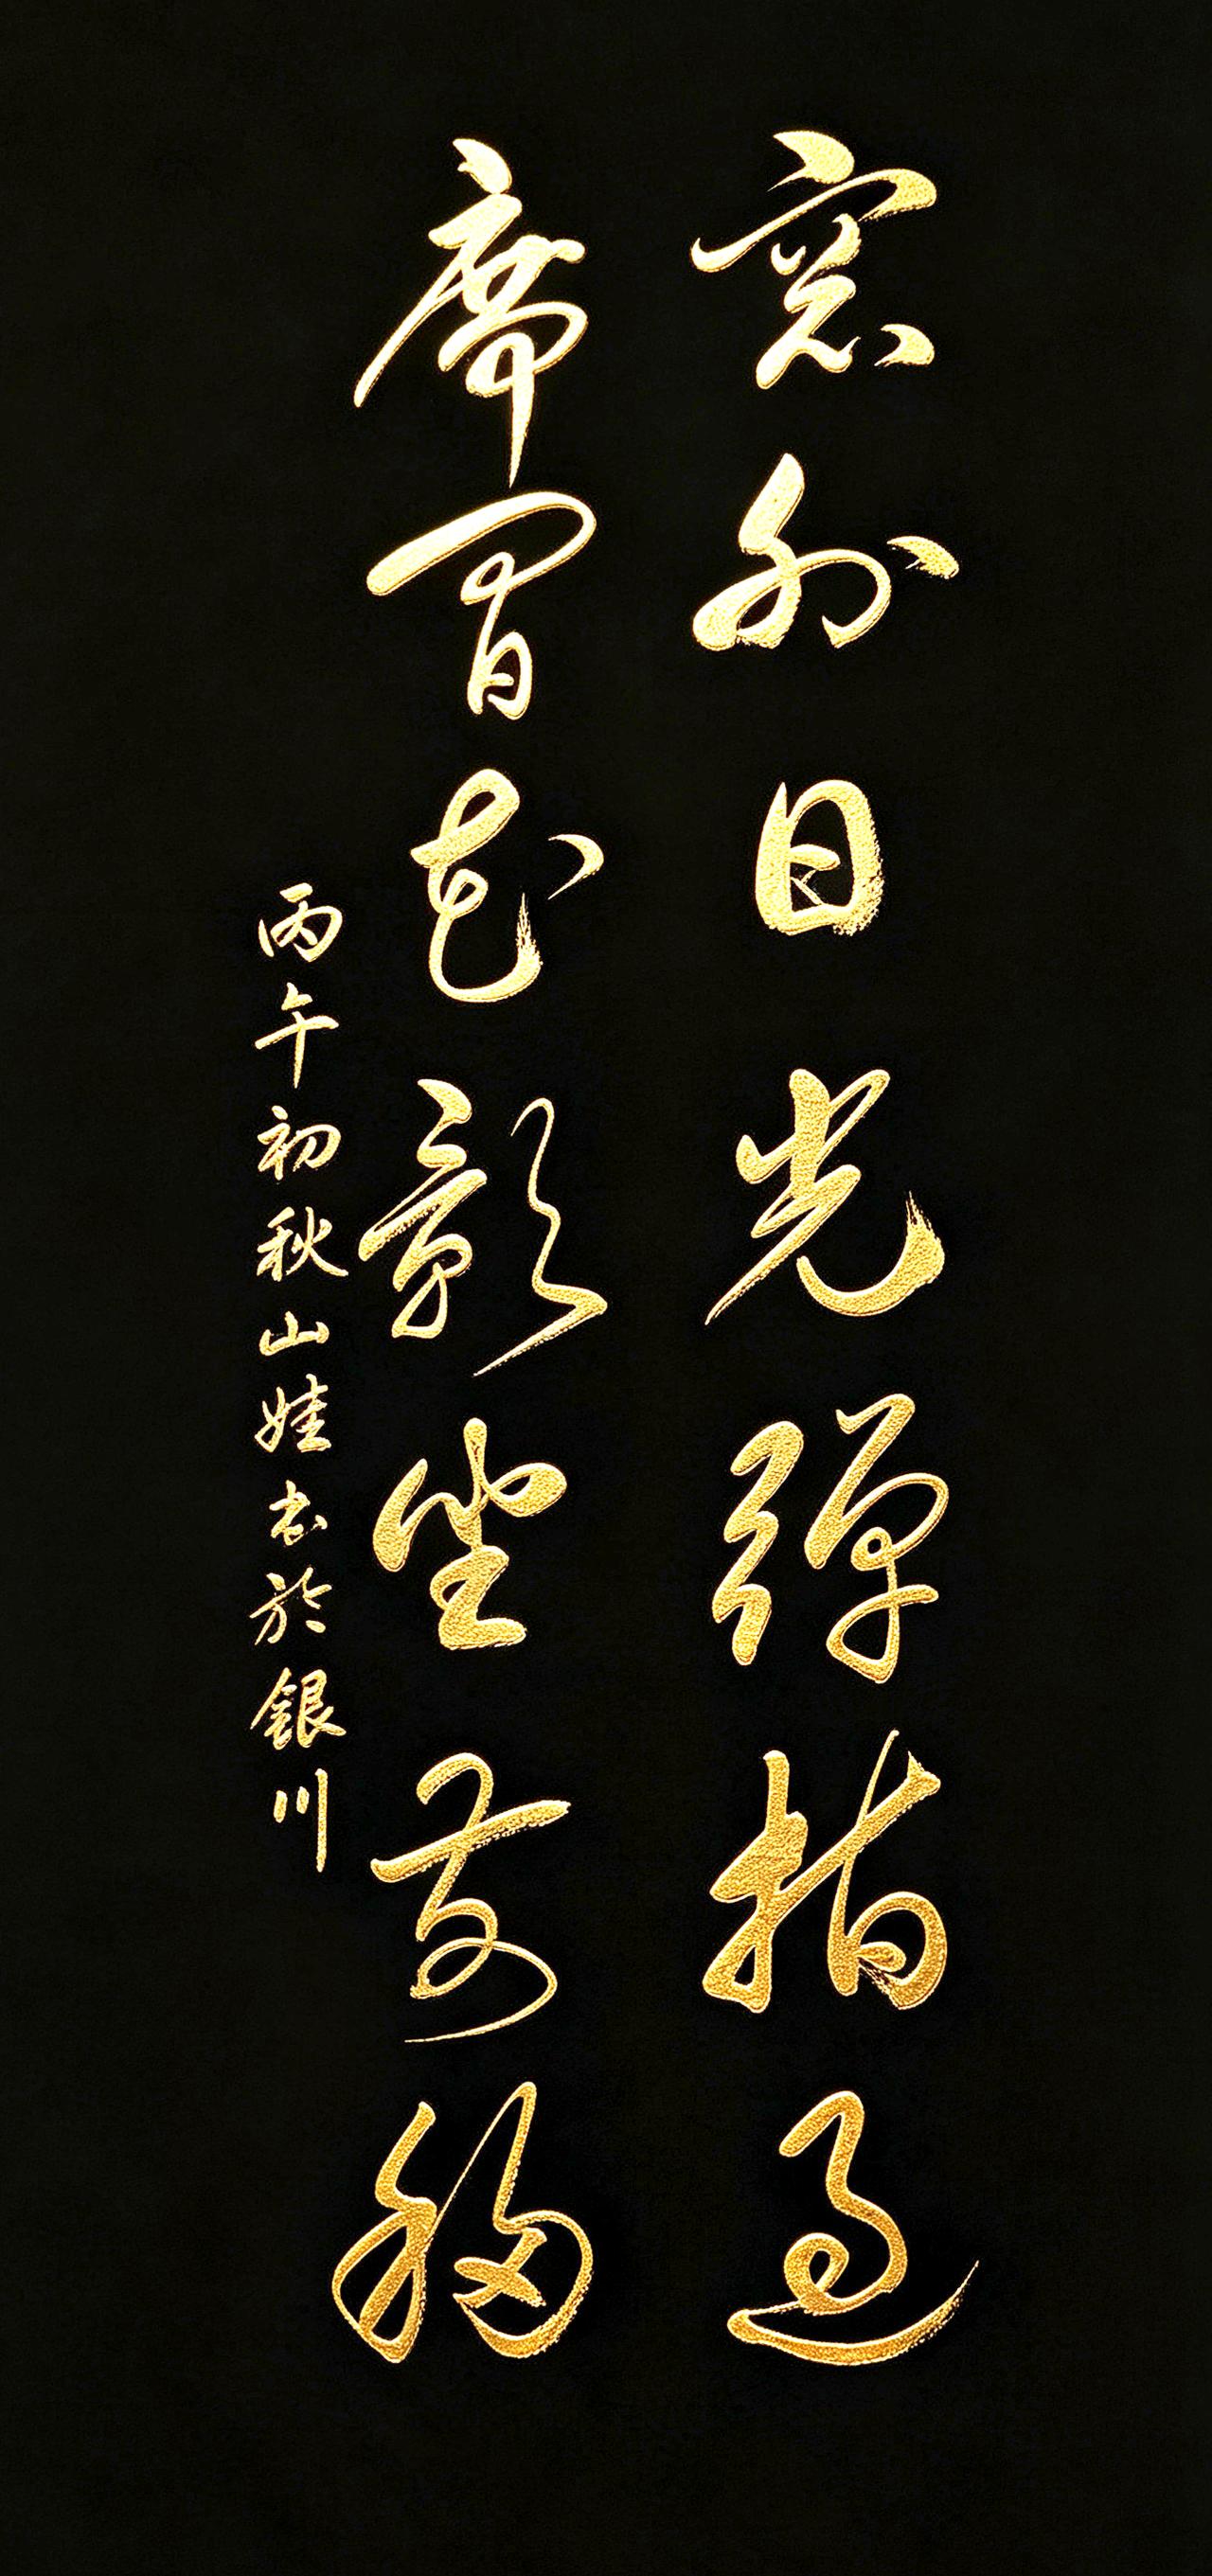 窓外日光彈指過
席間花影坐前移
丙午初秋山娃书於銀川